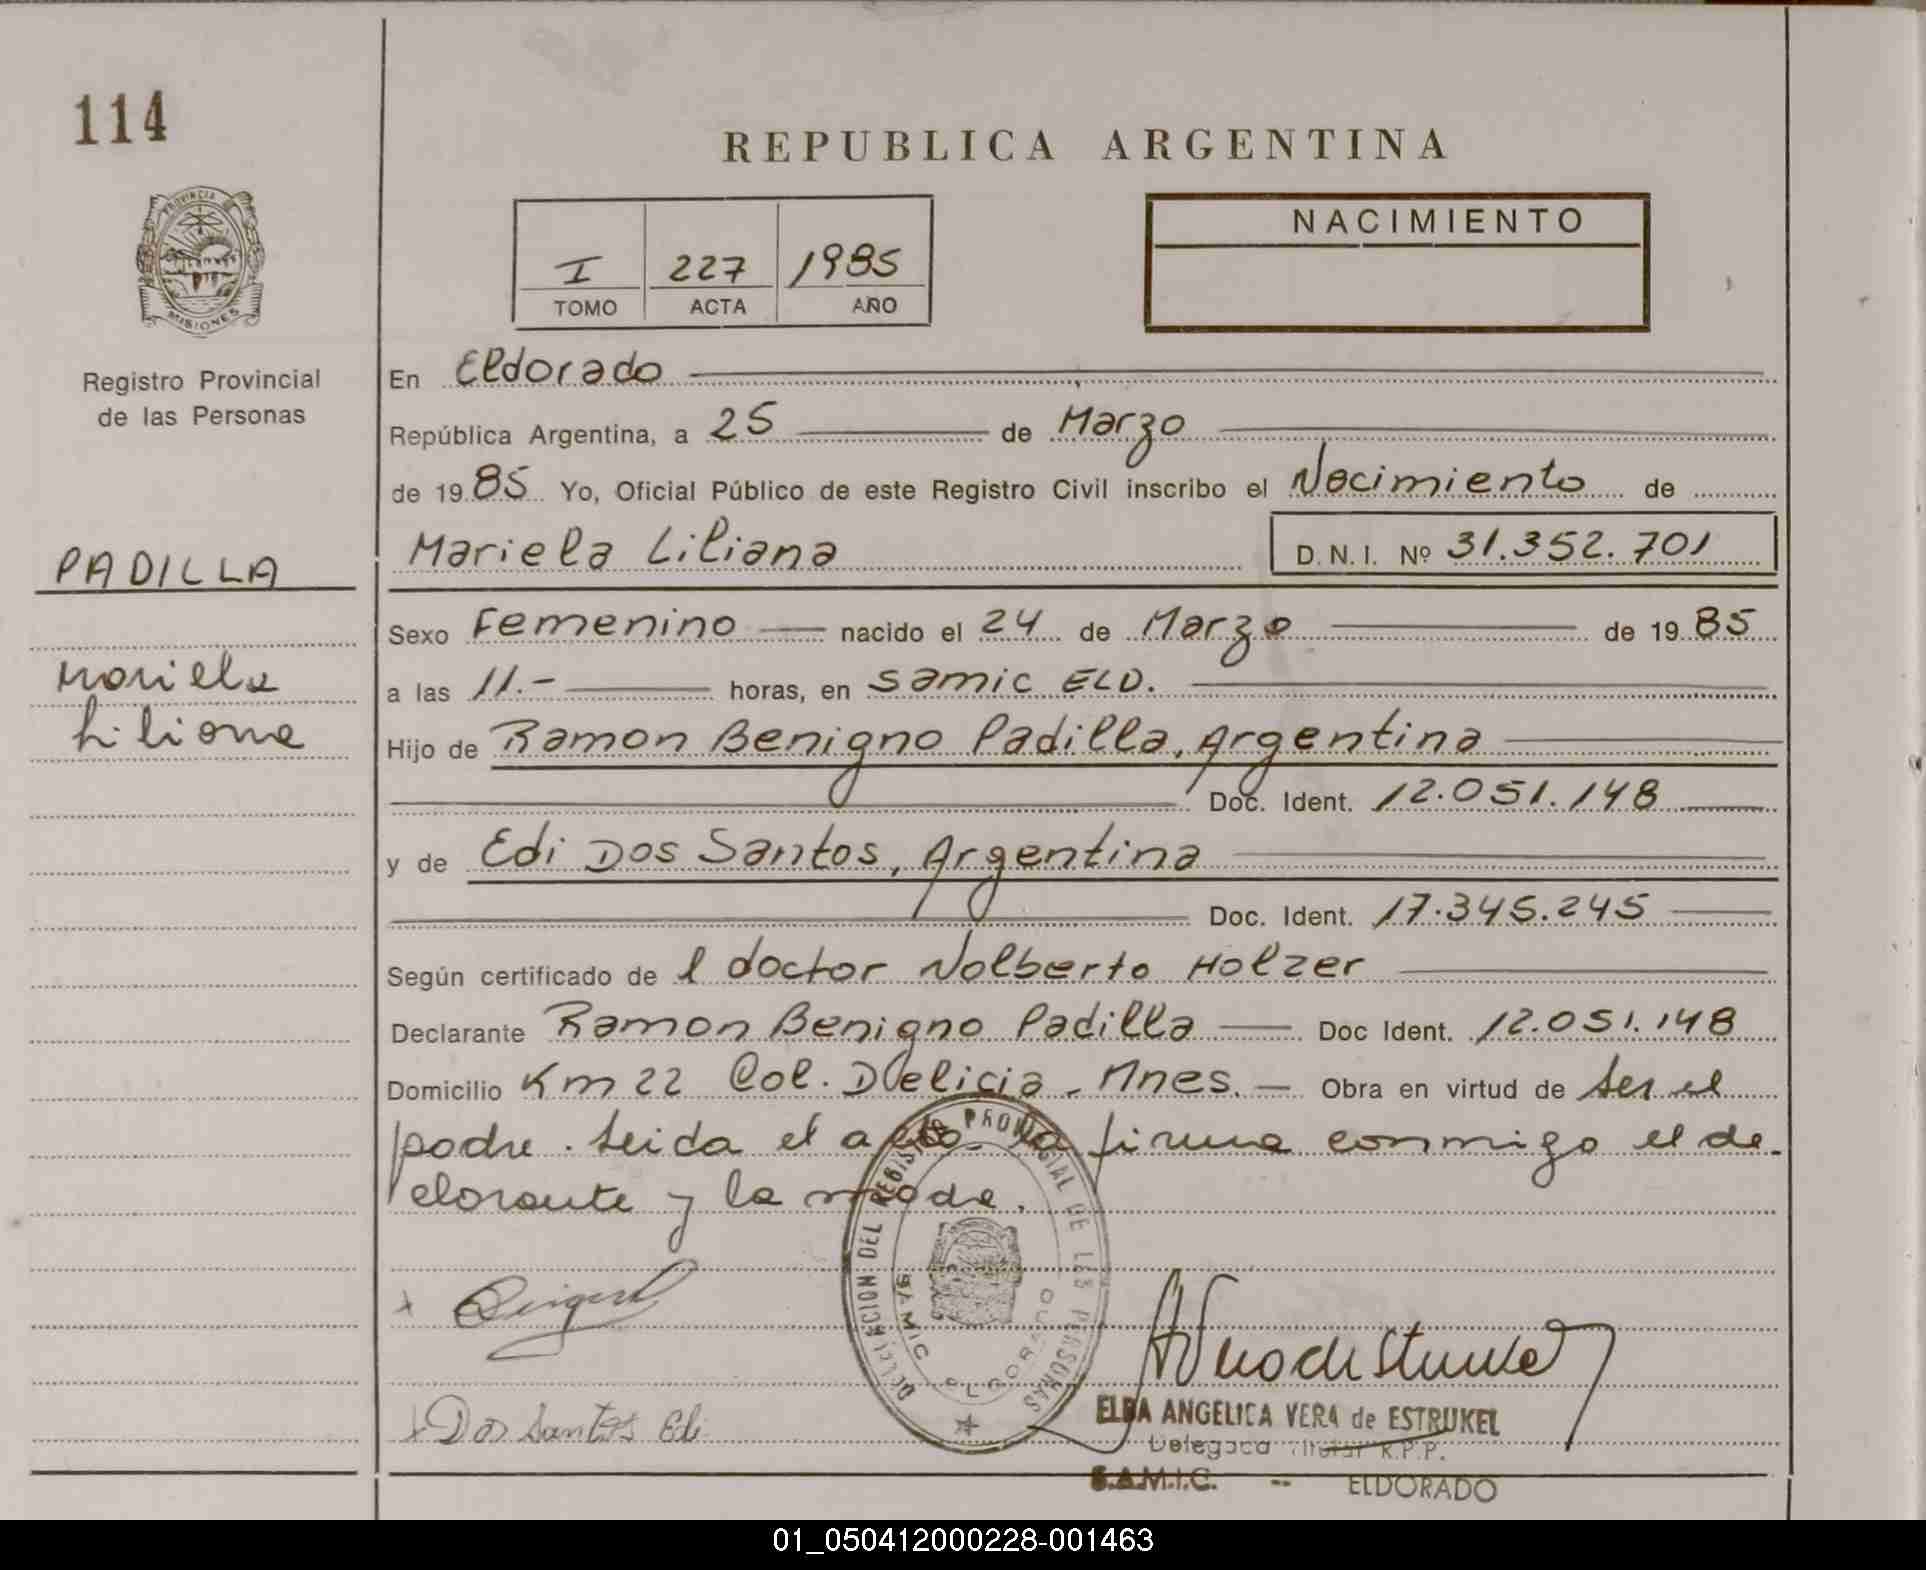 114
REPUBLICA ARGENTINA
PROVINCIA DE
MISIONES
Registro Provincial
de las Personas
I 227 1985
TOMO ACTA AÑO
NACIMIENTO
En Eldorado
República Argentina, a 25 de Marzo
de 1985 Yo, Oficial Público de este Registro Civil inscribo el Nacimiento de
PADILLA
Mariela Liliana D.N.I. Nº 31.352.701
Mariela
Liliana
Sexo Femenino nacido el 24 de Marzo de 1985
a las 11.- horas, en Samic ELD.
Hijo de Ramon Benigno Padilla, Argentina
Doc. Ident. 12.051.148
y de Edi Dos Santos, Argentina
Doc. Ident. 17.345.245
Según certificado de l doctor Nolberto Holzer
Declarante Ramon Benigno Padilla Doc Ident. 12.051.148
Domicilio Km 22 Col. Delicia, Mnes. Obra en virtud de ser el
padre. Leida el acta la firma conmigo el de-
clarante y la madre.
DELEGACION DEL REGISTRO PROVINCIAL DE LAS PERSONAS
SAMIC ELDORADO
x
x Dos Santos Edi
ELBA ANGELICA VERA de ESTRUKEL
Delegada Titular R.P.P.
S.A.M.I.C. -- ELDORADO
01_050412000228-001463